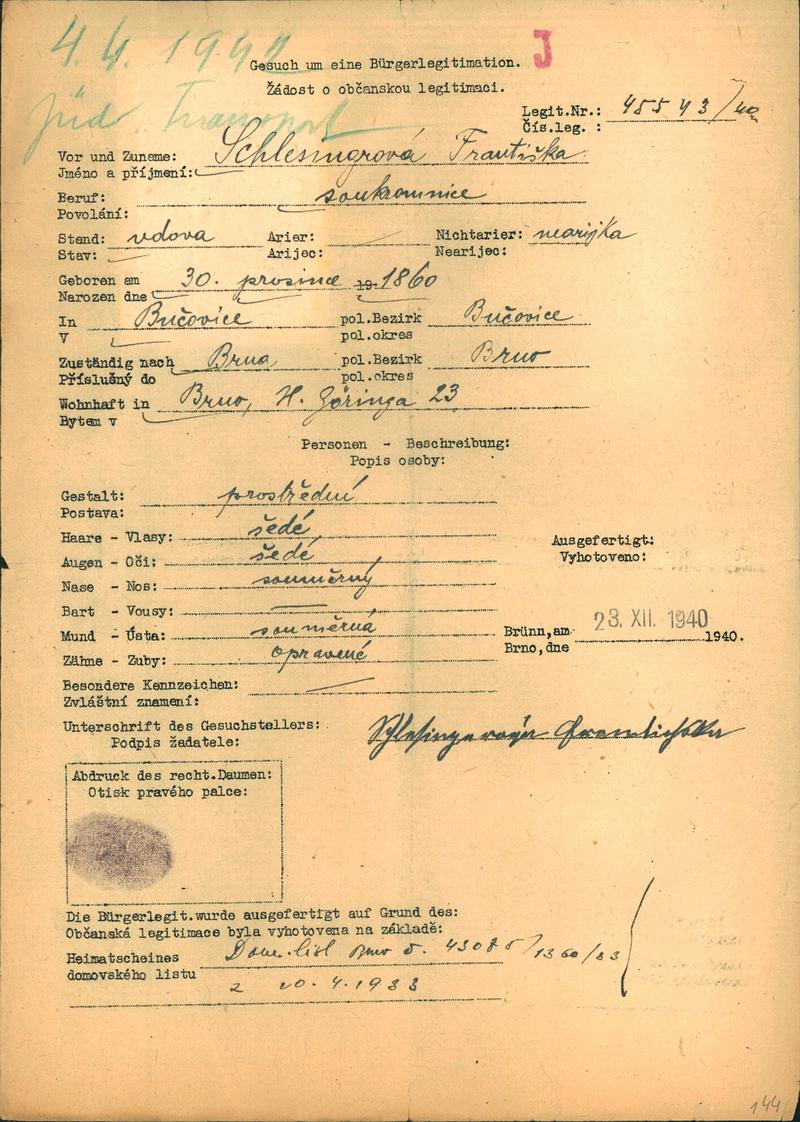 4.4.1942
Gesuch um eine Bürgerlegitimation. J
Žádost o občanskou legitimaci.
jüd. Transport
Legit.Nr.: 45543/40
Čís.leg. :
Vor und Zuname: Schlesingrová Františka
Jméno a příjmení:
Beruf: soukromnice
Povolání:
Stand: vdova Arier: Nichtarier: nearijka
Stav: Arijec: Nearijec:
Geboren am 30. prosince 19 1860
Narozen dne
In Bučovice pol.Bezirk Bučovice
V pol.okres
Zuständig nach Brna pol.Bezirk Brno
Příslušný do pol.okres
Wohnhaft in Brno, H. Göringa 23
Bytem v
Personen - Beschreibung:
Popis osoby:
Gestalt: prostřední
Postava:
Haare - Vlasy: šedé
Augen - Oči: šedé
Nase - Nos: souměrný
Bart - Vousy:
Mund - Ústa: souměrná
Zähne - Zuby: opravené
Ausgefertigt:
Vyhotoveno:
Brünn, am 23. XII. 1940 1940.
Brno, dne
Besondere Kennzeichen:
Zvláštní znamení:
Unterschrift des Gesuchstellers:
Podpis žadatele:
Abdruck des recht.Daumen:
Otisk pravého palce:
Die Bürgerlegit.wurde ausgefertigt auf Grund des:
Občanská legitimace byla vyhotovena na základě:
Heimatscheines Dom. list Brno č.
domovského listu
z 20.4.1933
144